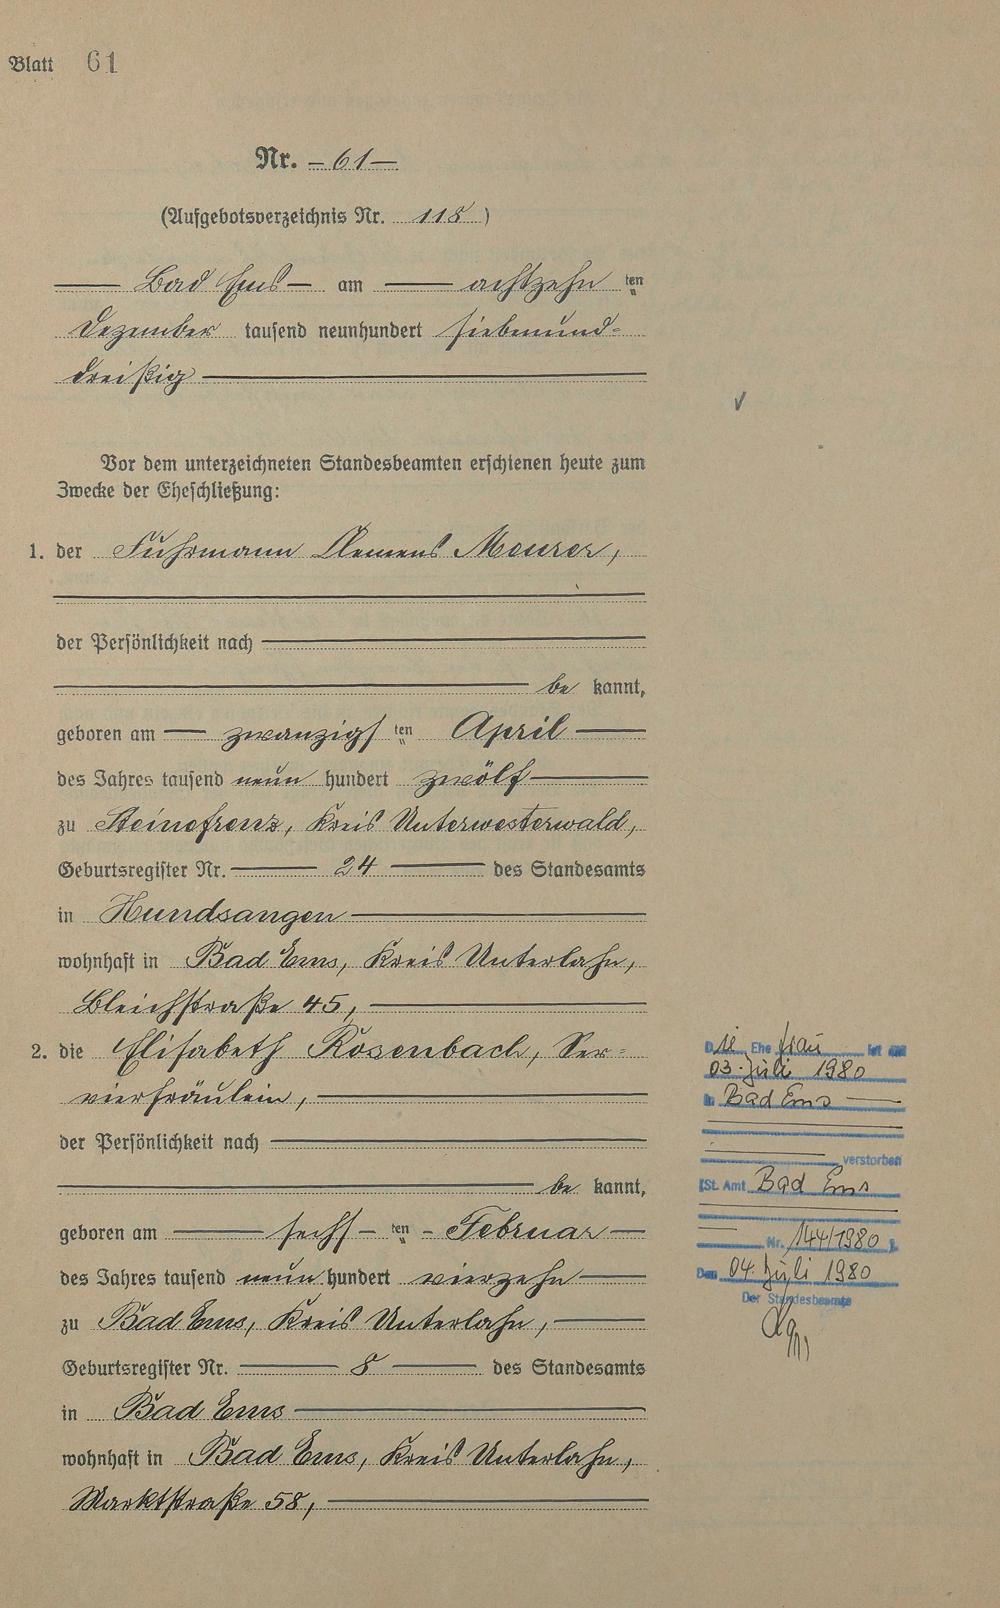 Blatt 61
Nr. 61
(Aufgebotsverzeichnis Nr. 118)
Bad Ems am achtzehn ten
Dezember tausend neunhundert siebenund-
dreißig
Vor dem unterzeichneten Standesbeamten erschienen heute zum
Zwecke der Eheschließung:
1. der Fuhrmann Klemens Meurer,
der Persönlichkeit nach
be kannt,
geboren am zwanzigs ten April
des Jahres tausend neun hundert zwölf
zu Steinefrenz, Kreis Unterwesterwald,
Geburtsregister Nr. 24 des Standesamts
in Hundsangen
wohnhaft in Bad Ems, Kreis Unterlahn,
Bleichstraße 45,
2. die Elisabeth Rosenbach, Ser-
vierfräulein,
der Persönlichkeit nach
be kannt,
geboren am sechs ten Februar
des Jahres tausend neun hundert vierzehn
zu Bad Ems, Kreis Unterlahn,
Geburtsregister Nr. 8 des Standesamts
in Bad Ems
wohnhaft in Bad Ems, Kreis Unterlahn,
Marktstraße 58,
Die Ehefrau ist am
03. Juli 1980
in Bad Ems
verstorben
(St. Amt Bad Ems
Nr. 144/1980 ).
Den 04. Juli 1980
Der Standesbeamte